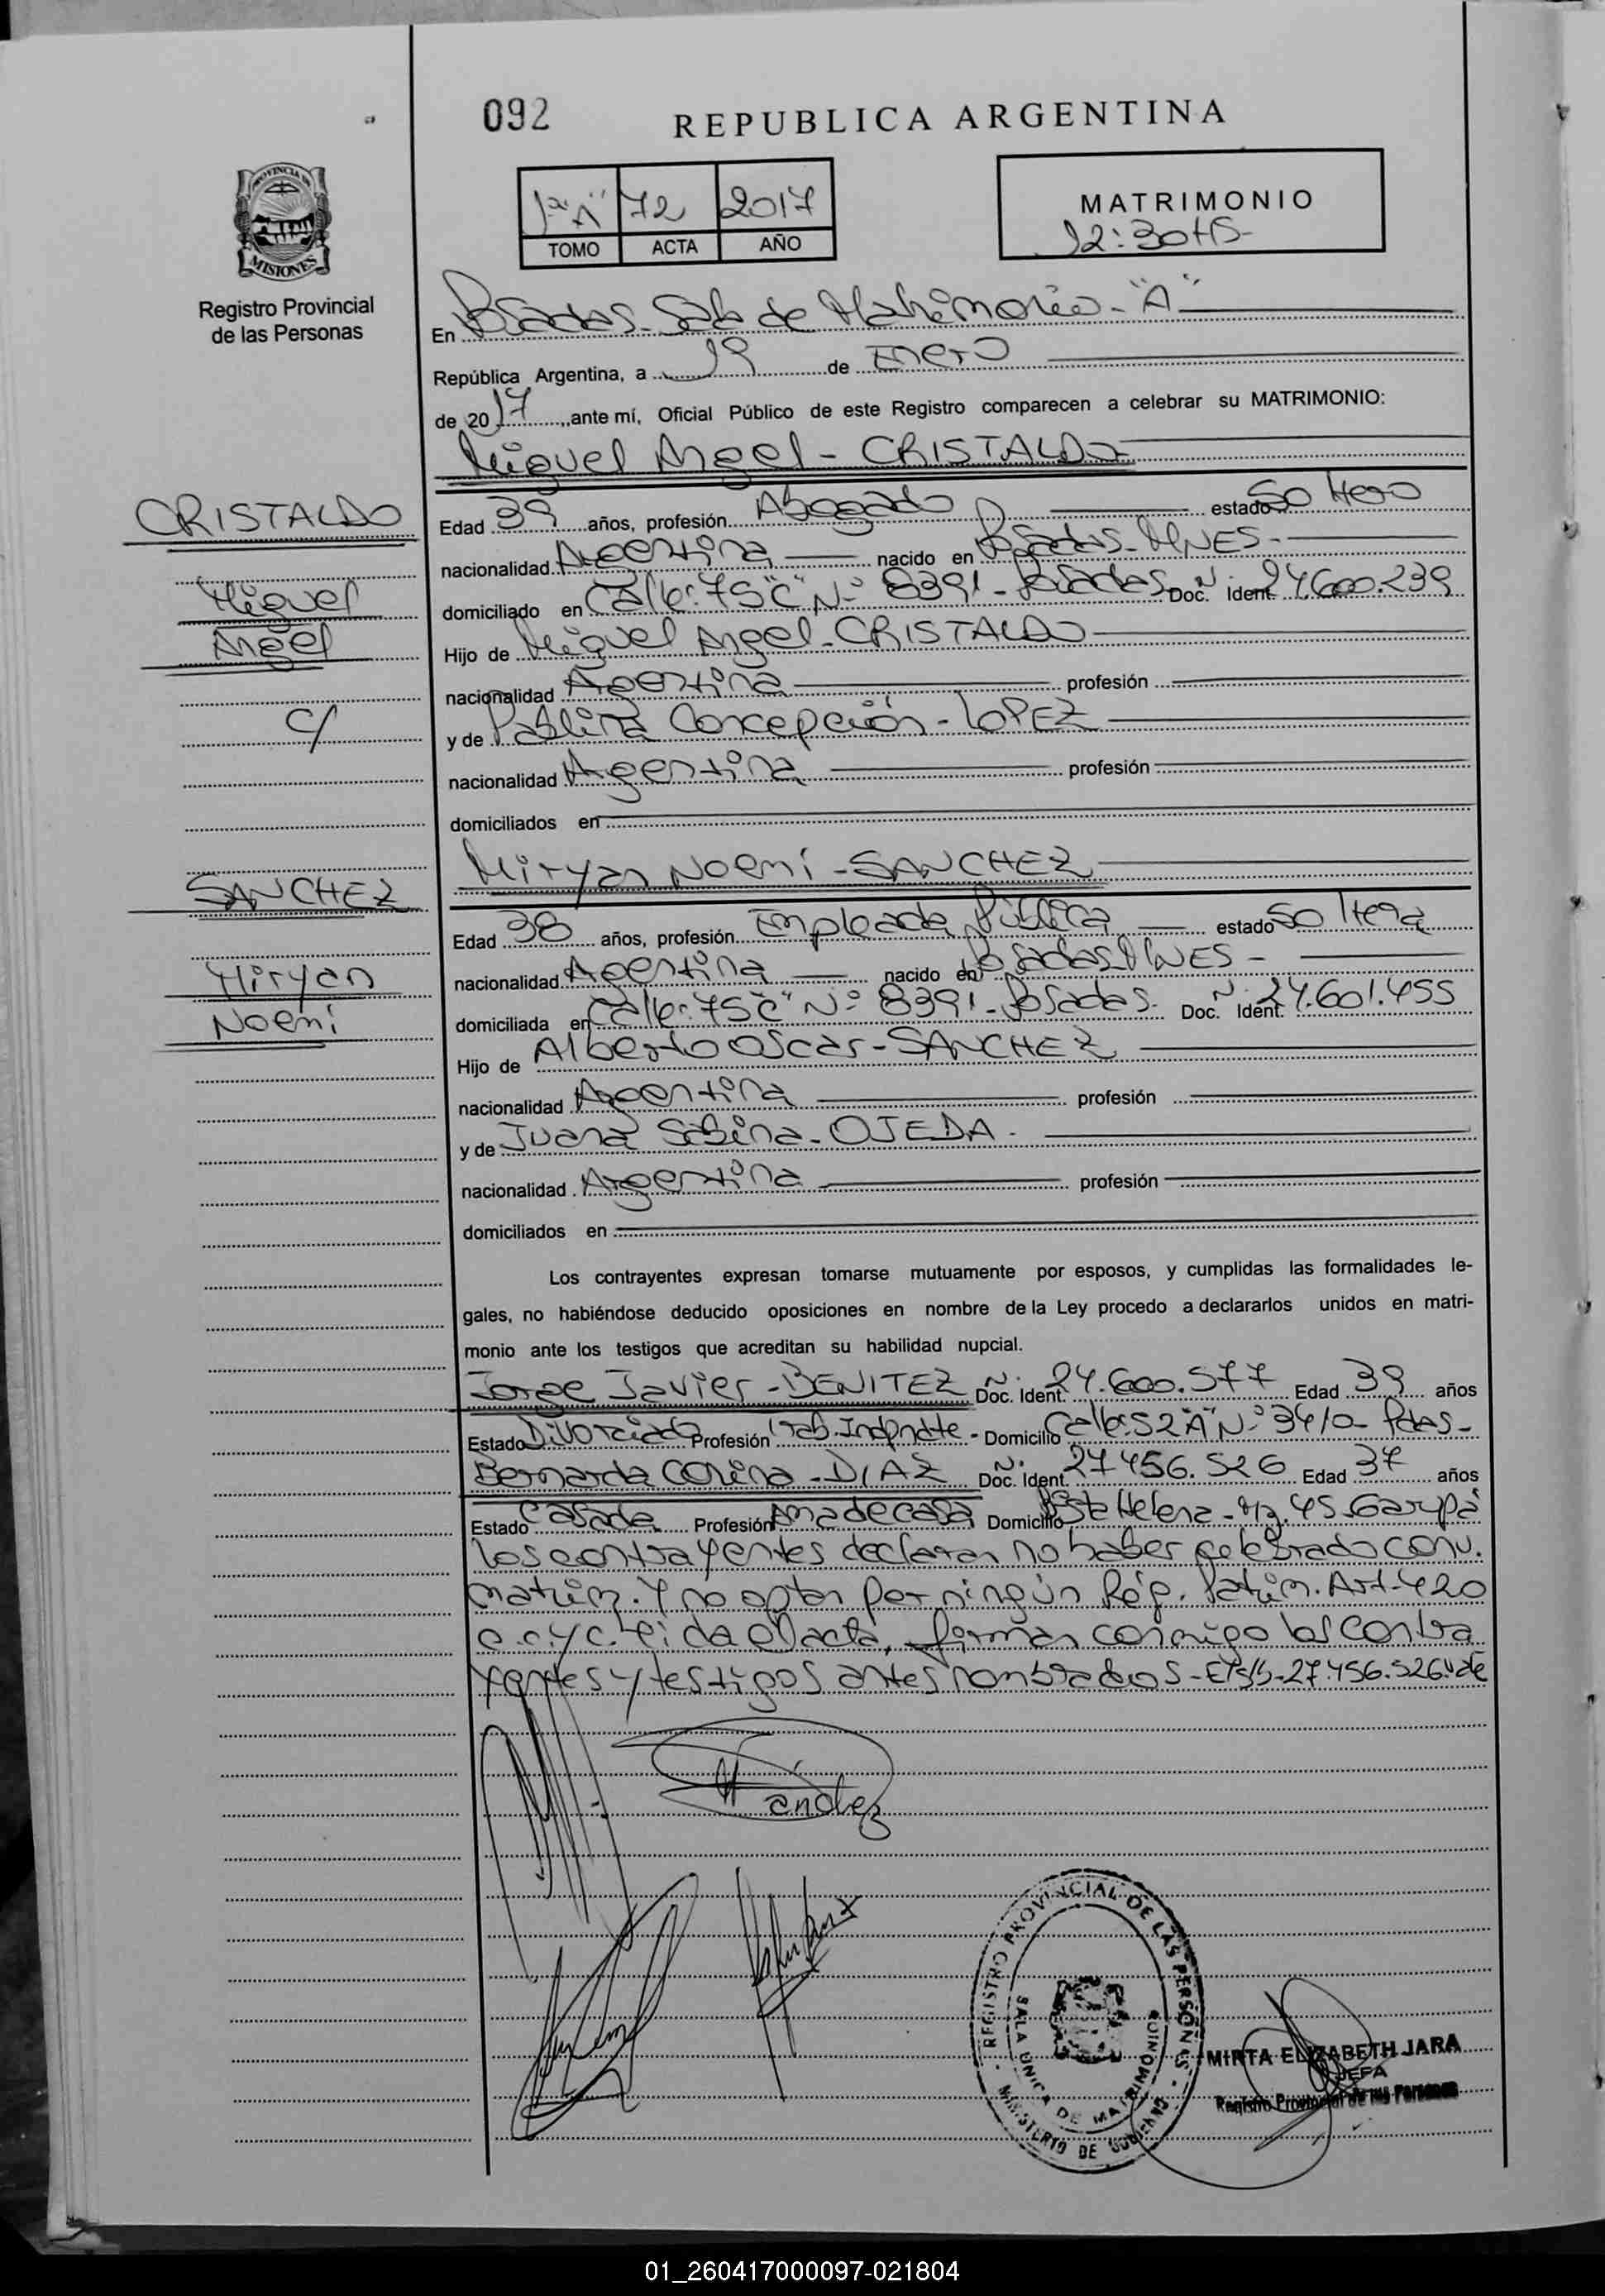 092
REPUBLICA ARGENTINA
PROVINCIA DE
MISIONES
Registro Provincial
de las Personas
1º "A" 72 2017
TOMO ACTA AÑO
MATRIMONIO
12:30 HS-
En Posadas-Sala de Matrimonio-"A"
República Argentina, a 19 de Enero
de 2017, ante mí, Oficial Público de este Registro comparecen a celebrar su MATRIMONIO:
Miguel Angel - CRISTALDO
CRISTALDO
Miguel
Angel
c/
SANCHEZ
Miryan
Noemí
Edad 39 años, profesión Abogado estado Soltero
nacionalidad Argentina nacido en Posadas-MNES-
domiciliado en Calle: 75"C" Nº 8391-Posadas Doc. Ident. Nº 24.600.239
Hijo de Miguel Angel-CRISTALDO
nacionalidad Argentina profesión
y de Pablina Concepción-LOPEZ
nacionalidad Argentina profesión
domiciliados en
Miryan Noemí-SANCHEZ
Edad 38 años, profesión Empleada Pública estado Soltera
nacionalidad Argentina nacido en Posadas-MNES-
domiciliada en Calle: 75"C" Nº 8391-Posadas. Doc. Ident. Nº 27.601.455
Hijo de Alberto Oscar-SANCHEZ
nacionalidad Argentina profesión
y de Juana Sabina-OJEDA-
nacionalidad Argentina profesión
domiciliados en
Los contrayentes expresan tomarse mutuamente por esposos, y cumplidas las formalidades le-
gales, no habiéndose deducido oposiciones en nombre de la Ley procedo a declararlos unidos en matri-
monio ante los testigos que acreditan su habilidad nupcial.
Jorge Javier-BENITEZ Doc. Ident. Nº 24.600.577 Edad 39 años
Estado Divorciado Profesión Trab. Indpndte- Domicilio Calle: 52"A" Nº 3410-Pdas-
Bernarda Corina-DIAZ Doc. Ident. Nº 27.456.526 Edad 37 años
Estado Casada Profesión Ama de casa Domicilio Bº Sta Helena-Mz. 45-Garupá
Los contrayentes declaran no haber celebrado conv.
matrim. y no optan por ningún Rég. Patrim. Art-420
c.c.y c. Leída el acta, firman conmigo los contra
yentes y testigos antes nombrados-E/s/b-27.456.526.Vale
Sánchez
REGISTRO PROVINCIAL DE LAS PERSONAS - MINISTERIO DE GOBIERNO -
SALA ÚNICA DE MATRIMONIO
MIRTA ELIZABETH JARA
JEFA
Registro Provincial de las Personas
01_260417000097-021804